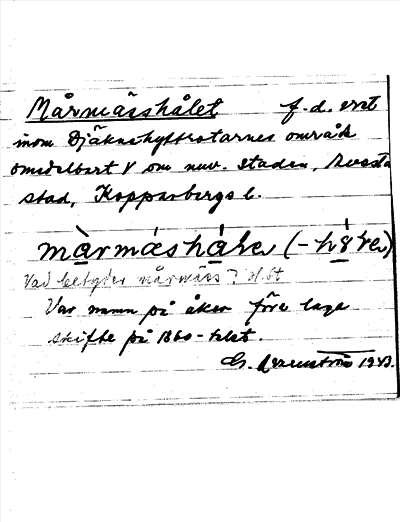 Mårmässhålet f.d. ervt
inom Djäknehyttrotarnes område
omedelbart V om nuv. staden, Avesta
stad, Kopparbergs l.
màrmáshála (-h
Vad betyder mårmäss?
Var namn på åker före laga
skifte på 1860-talet.
G. 1943.